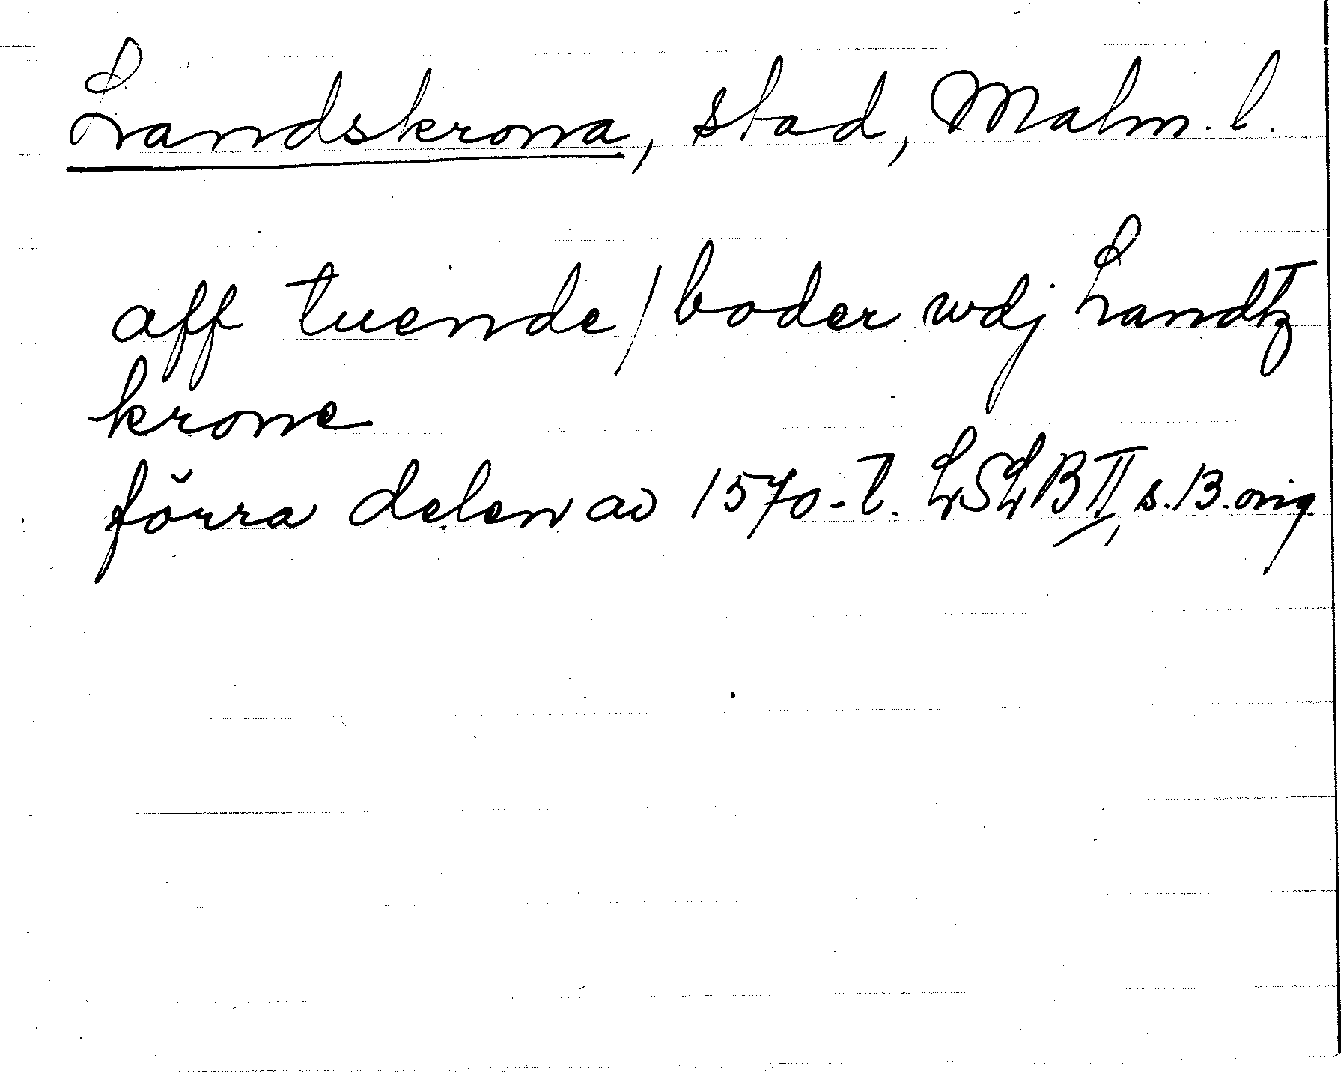 Landskrona, stad, Malm. l.
aff tuende / boder wdj Landtz
krone
förra delen av 1570-t. LSLB II, s. 13. orig.